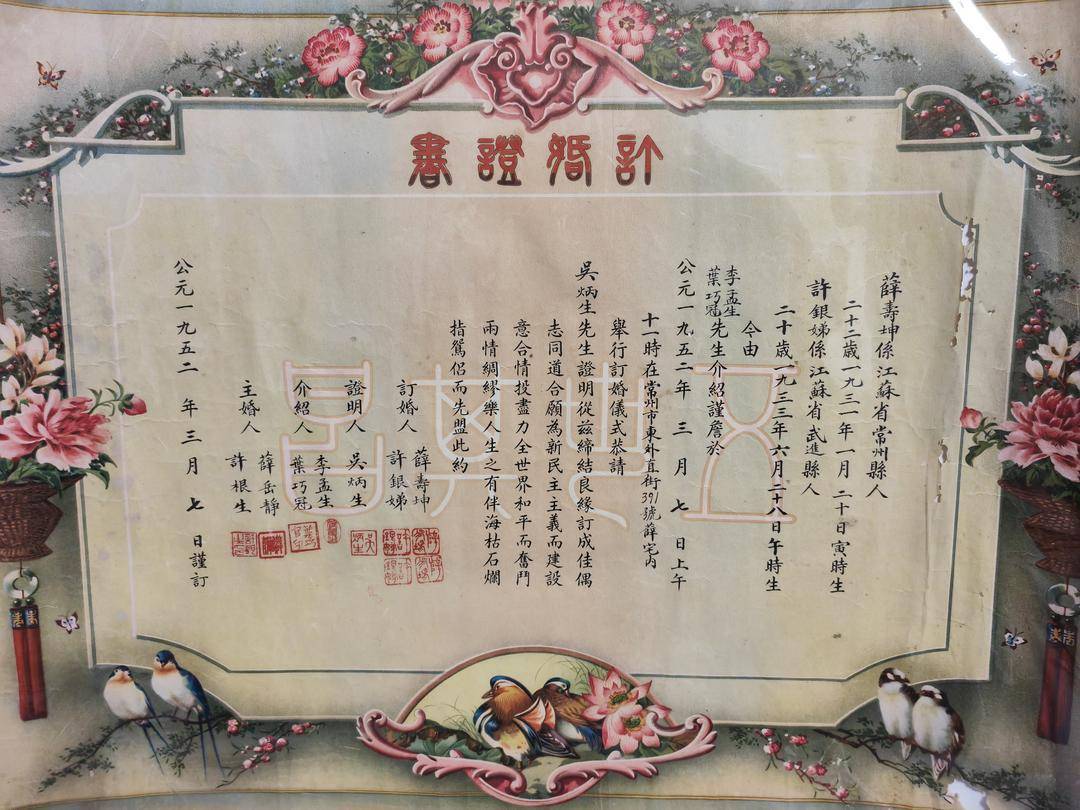 訂婚證書
薛壽坤係江蘇省常州縣人
二十二歲一九三一年一月二十日寅時生
許銀娣係江蘇省武進縣人
二十歲一九三三年六月二十八日午時生
今由
李孟生
葉巧冠先生介紹謹詹於
公元一九五二年三月七日上午
十一時在常州市東外直街391號薛宅內
舉行訂婚儀式恭請
吳炳生先生證明從兹締結良緣訂成佳偶
志同道合願為新民主主義而建設
意合情投盡力全世界和平而奮鬥
兩情綢繆樂人生之有伴海枯石爛
指鴛侶而先盟此約
訂婚人 薛壽坤
許銀娣
證明人 吳炳生
介紹人 李孟生
葉巧冠
主婚人 薛岳靜
許根生
公元一九五二年三月七日謹訂